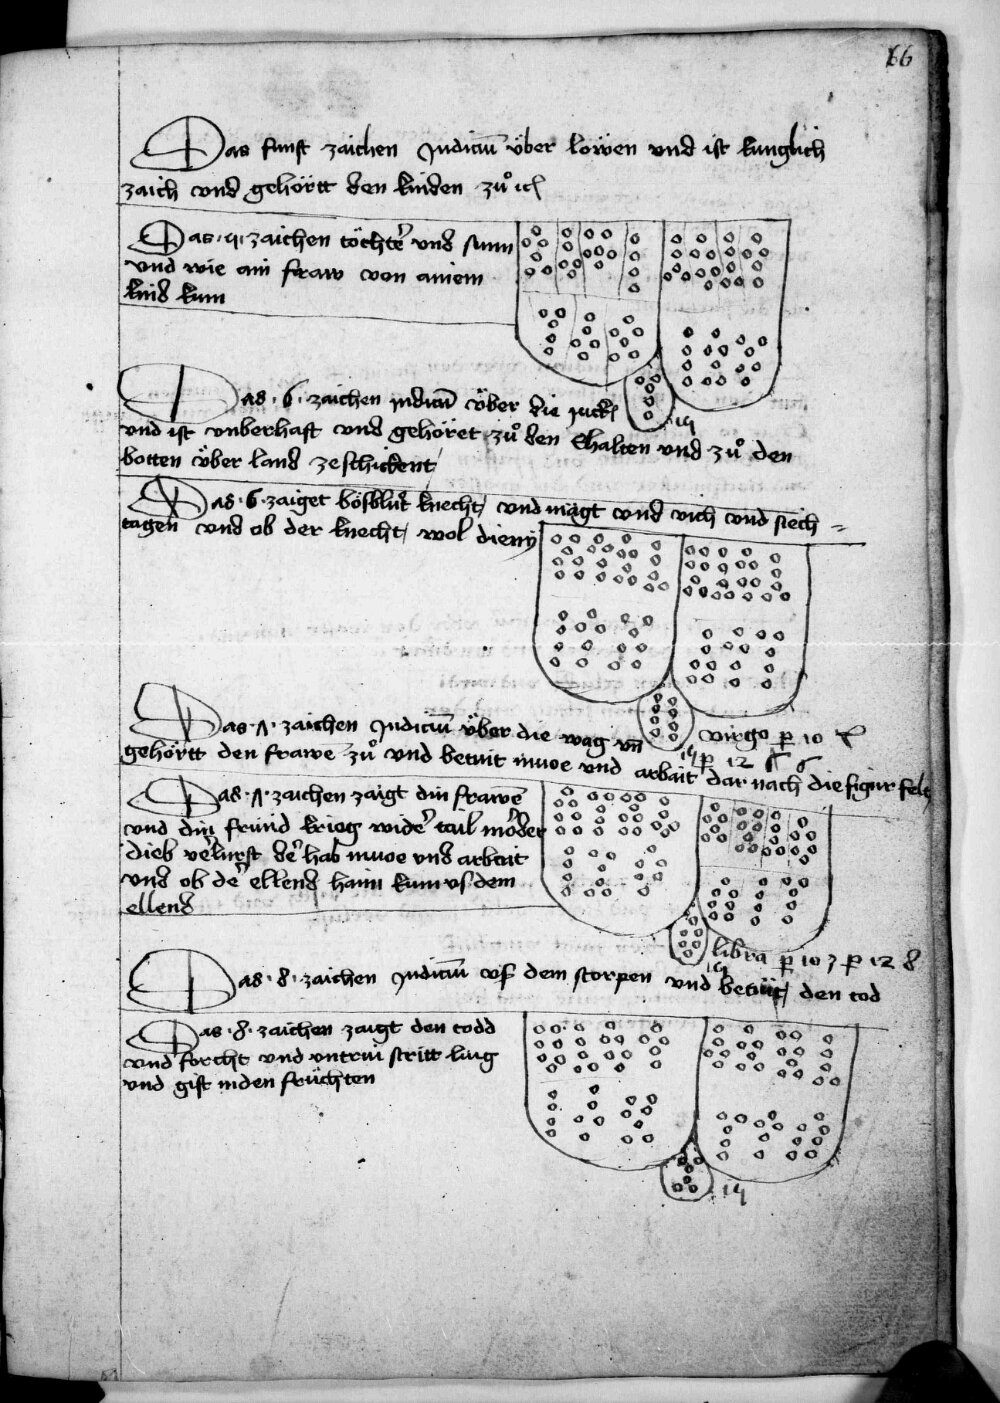 66
Das funft zaichen Judiciū über löwen vnd ist kunglich
zaich vnd gehörtt den kinden zů
Das ·4· zaichen töchter vnd sunn
vnd wie ain fraw von ainem
kind kum
Das ·6· zaichen Judiciū über die
vnd ist vnberhaft vnd gehöret zů den Ehalten vnd zů den
botten über land zeschickent
14
Das ·6· zaiget bösblůt knecht vnd mägt vnd vich vnd siech =
tagen vnd ob der knecht wol dieny
Das ·7· zaichen Judiciū über die wag vñ
virgo p 10
14 p 12 6
gehörtt den frawe zů vnd betuit muoe vnd arbait dar nach die figur
Das ·7· zaichen zaigt din frawē
vnd din fründ krieg wider tail mörder
dieb verlurst der hab muoe vnd arbait
vnd ob der ellend haim kum vs dem
ellend
libra p 10 3 p 12 8
14
Das ·8· zaichen Judiciū vf dem storpen vnd betüt den tod
Das ·8· zaichen zaigt den todd
vnd forcht vnd vntruī stritt lug
vnd gift in den früchten
14